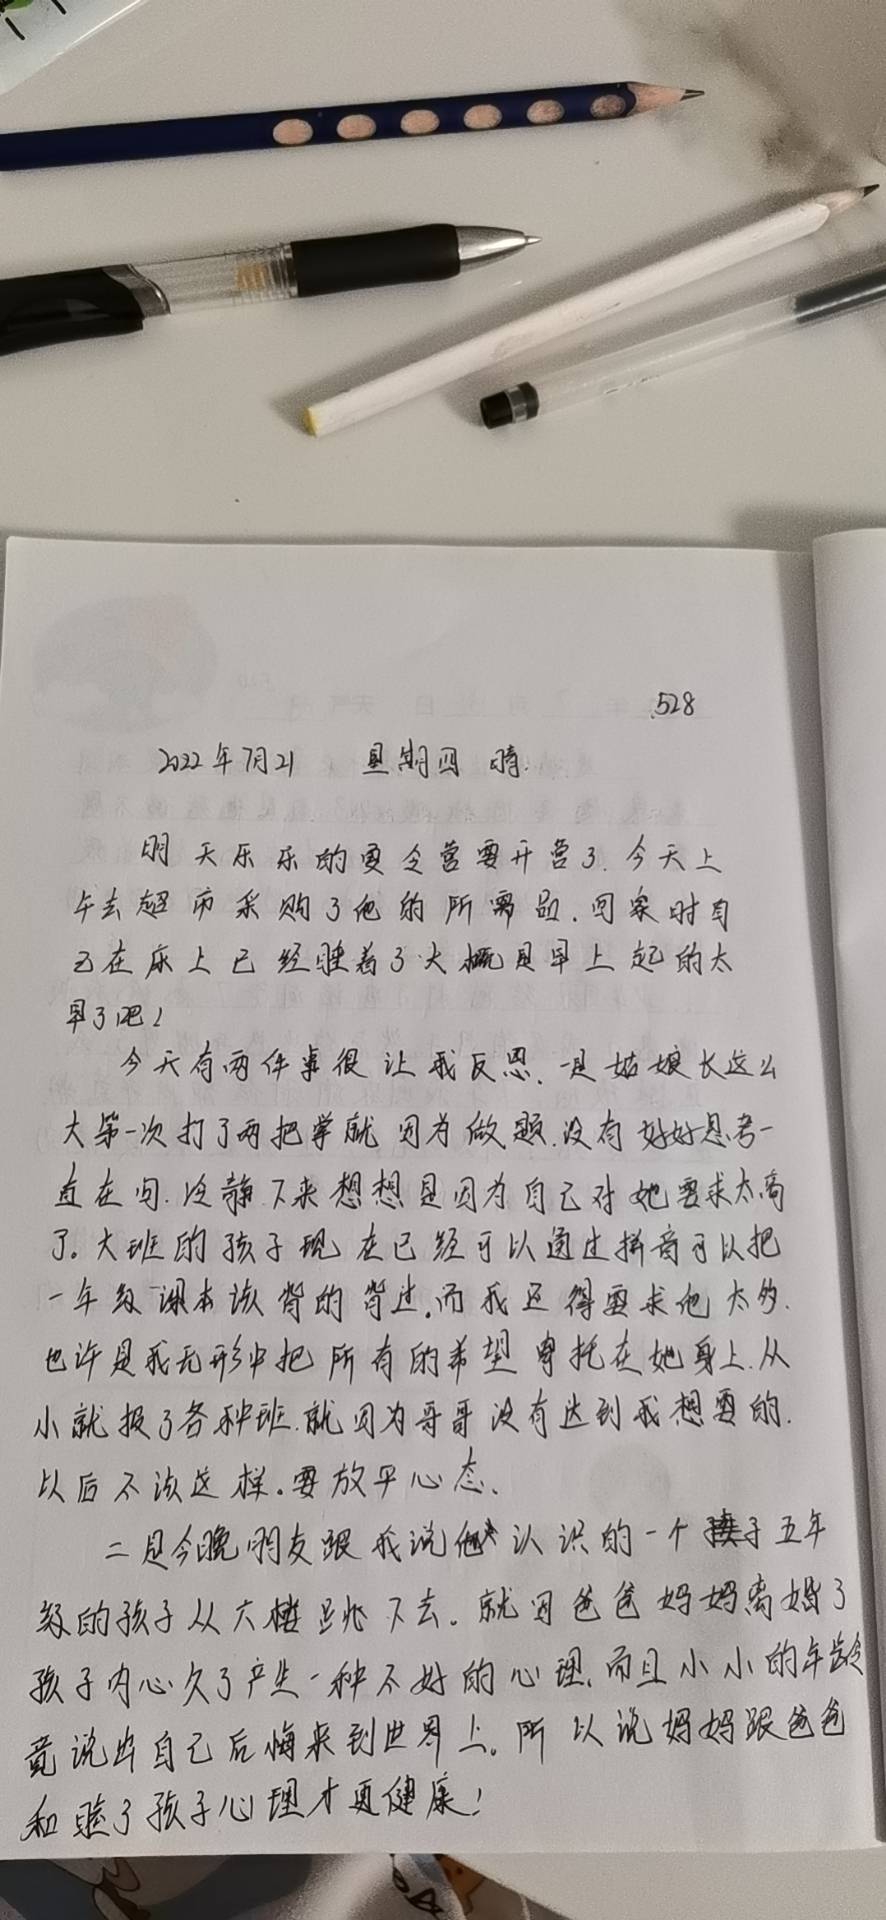 528
2022年7月21 星期四 晴.
明天乐乐的夏令营要开营了.今天上
午去超市采购了他的所需品.回家时自
己在床上已经睡着了大概是早上起的太
早了吧！
今天有两件事很让我反思、一是姑娘长这么
大第一次打了两把掌就因为做题.没有好好思考一
直在问.冷静下来想想是因为自己对她要求太高
了。大班的孩子现在已经可以通过拼音可以把
一年级课本该背的背过.而我还得要求他太多.
也许是我无形中把所有的希望寄托在她身上.从
小就报了各种班.就因为哥哥没有达到我想要的.
以后不该这样。要放平心态、
二是今晚朋友跟我说他认识的一个孩子五年
级的孩子从六楼跳下去。就因爸爸妈妈离婚了
孩子内心久了产生一种不好的心理.而且小小的年龄
竟说出自己后悔来到世界上。所以说妈妈跟爸爸
和睦了孩子心理才更健康！